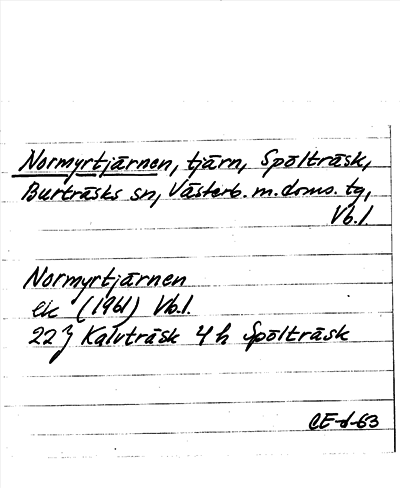 Normyrtjärnen, tjärn, Spölträsk,
Burträsks sn, Västerb. m. doms. tg,
Vb.l.
Normyrtjärnen
ek (1961) Vb.l.
22 J Kalvträsk 4 h Spölträsk
CE-d-63